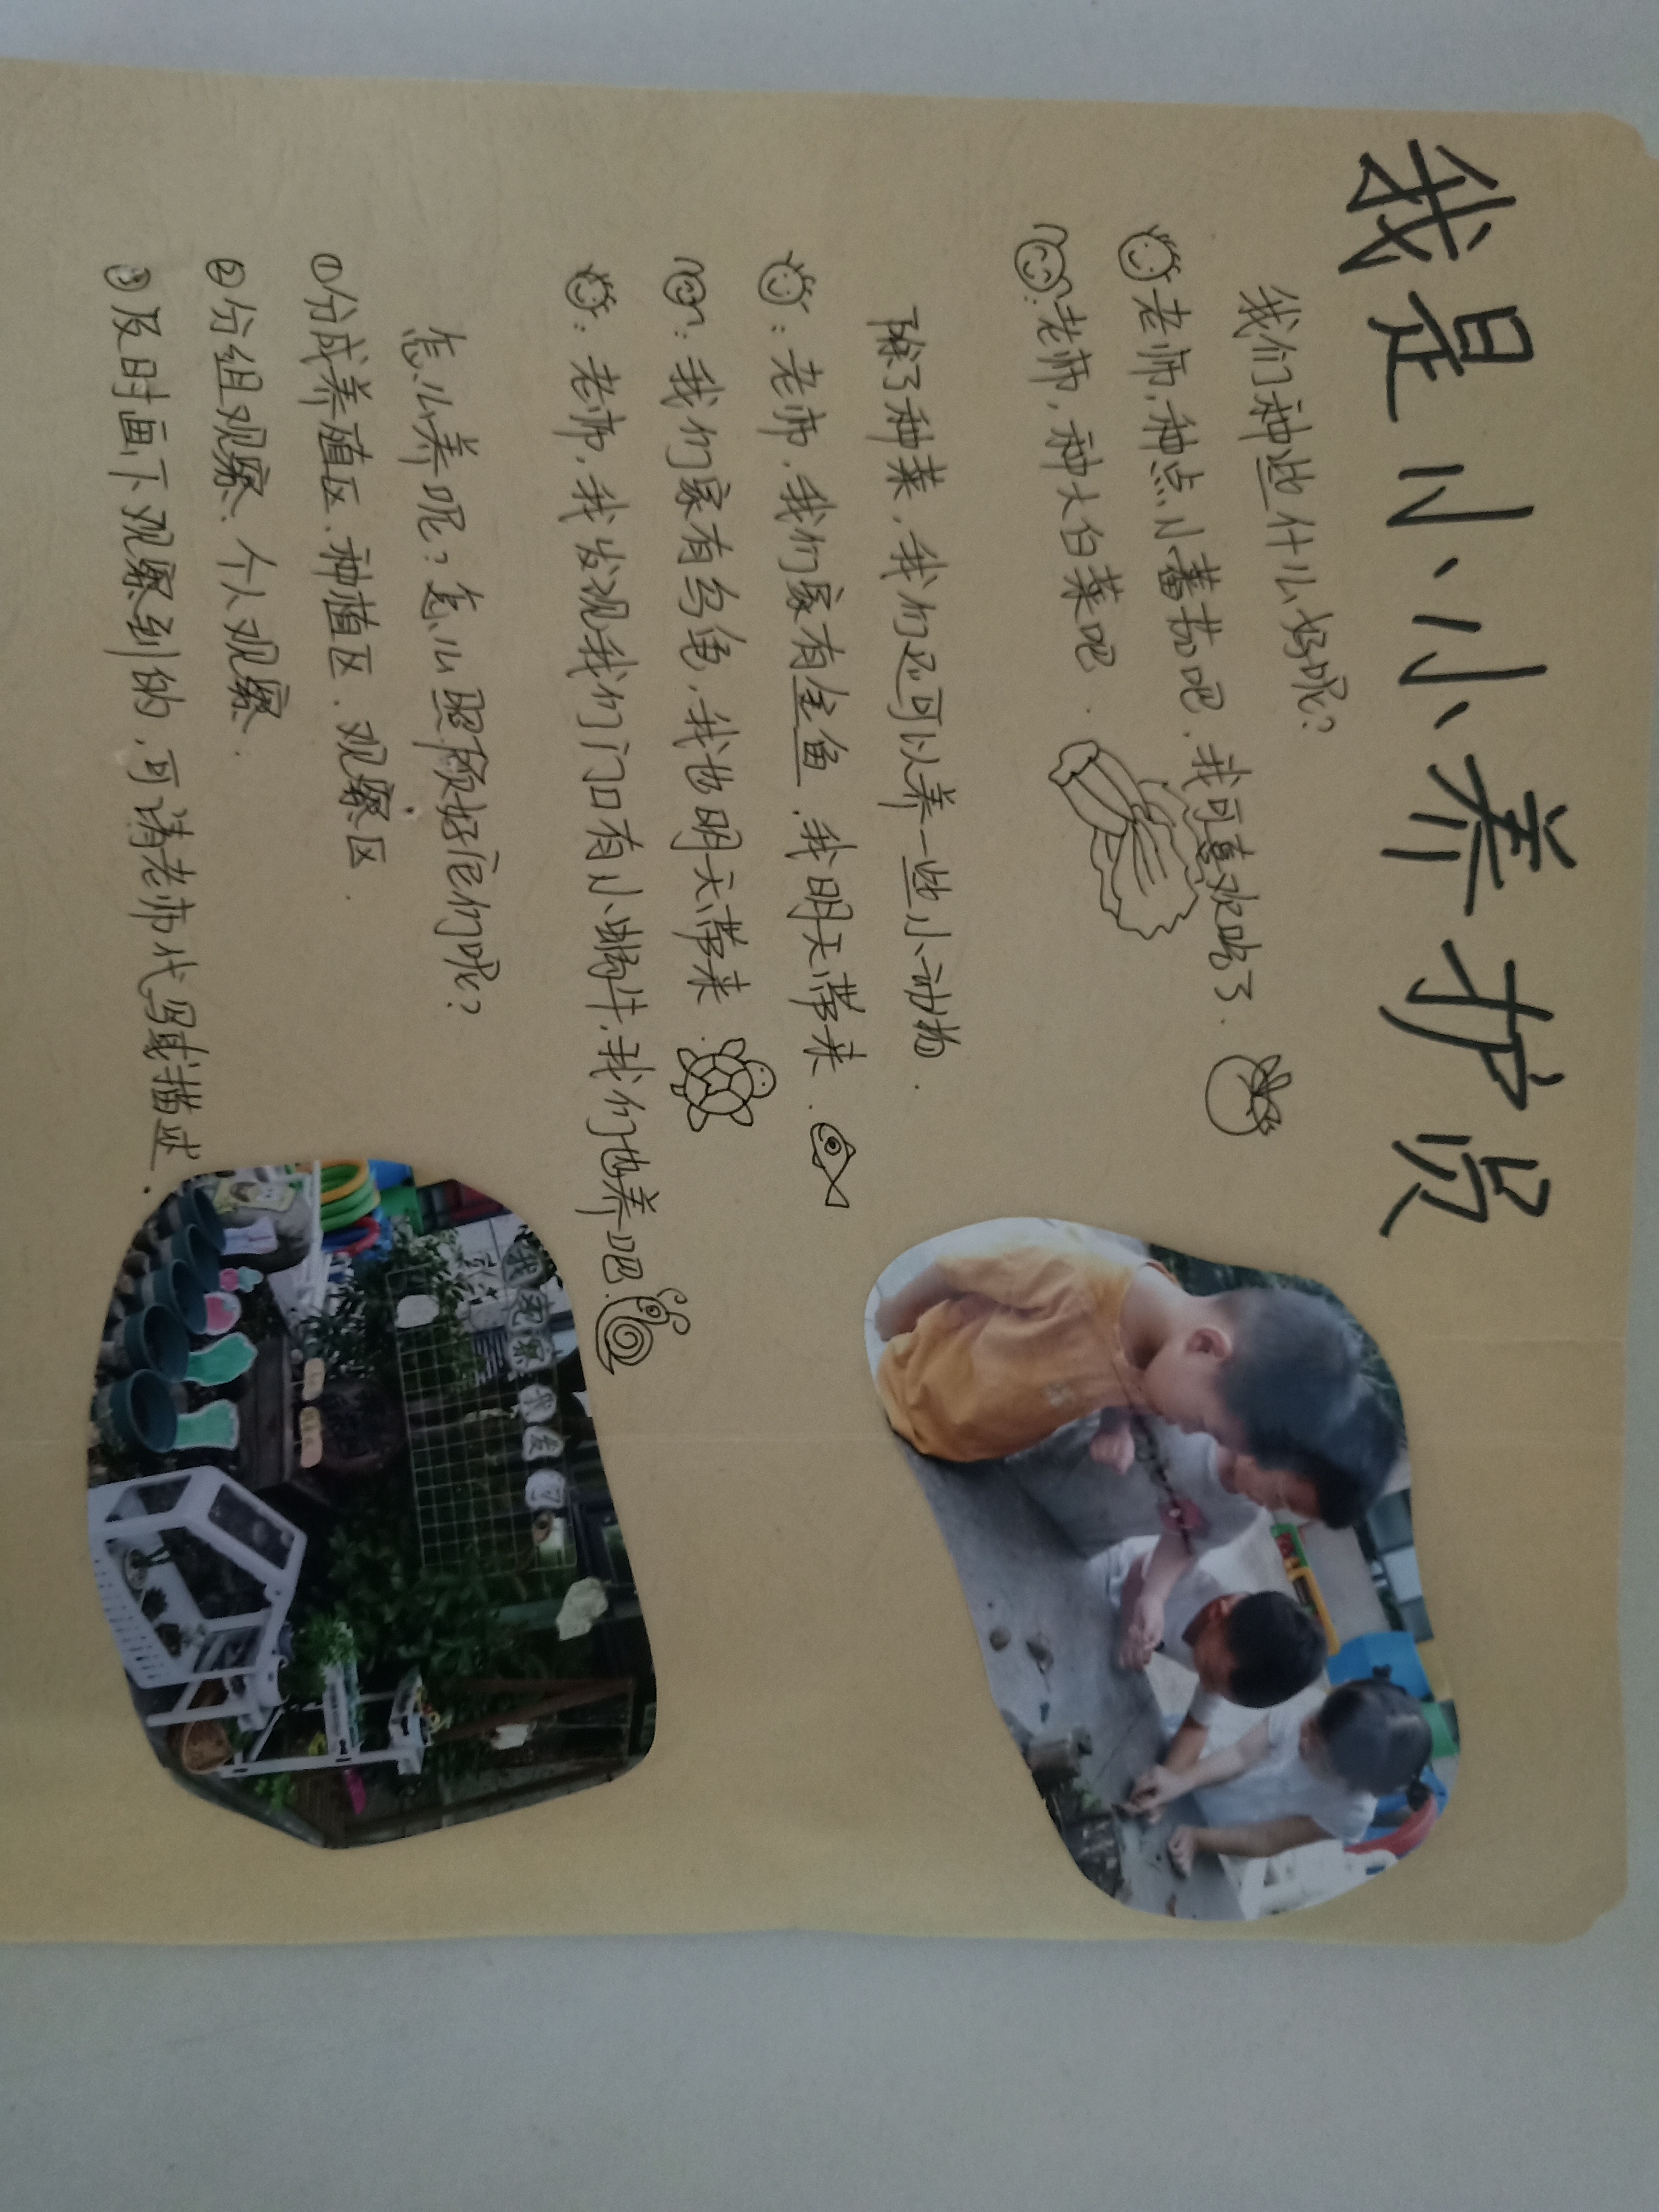 我是小小养护员
我们种些什么好呢?
老师,种点小蕃茄吧,我可喜欢吃了.
:老师,种大白菜吧.
除了种菜,我们还可以养一些小动物.
:老师,我们家有金鱼,我明天带来.
:我们家有乌龟,我也明天带来.
:老师,我发现我们门口有小蜗牛,我们也养吧.
怎么养呢?怎么照顾好它们呢?
①分成养殖区、种植区、观察区.
②分组观察、个人观察.
③及时画下观察到的,可请老师代写或描述.
我观察 我发